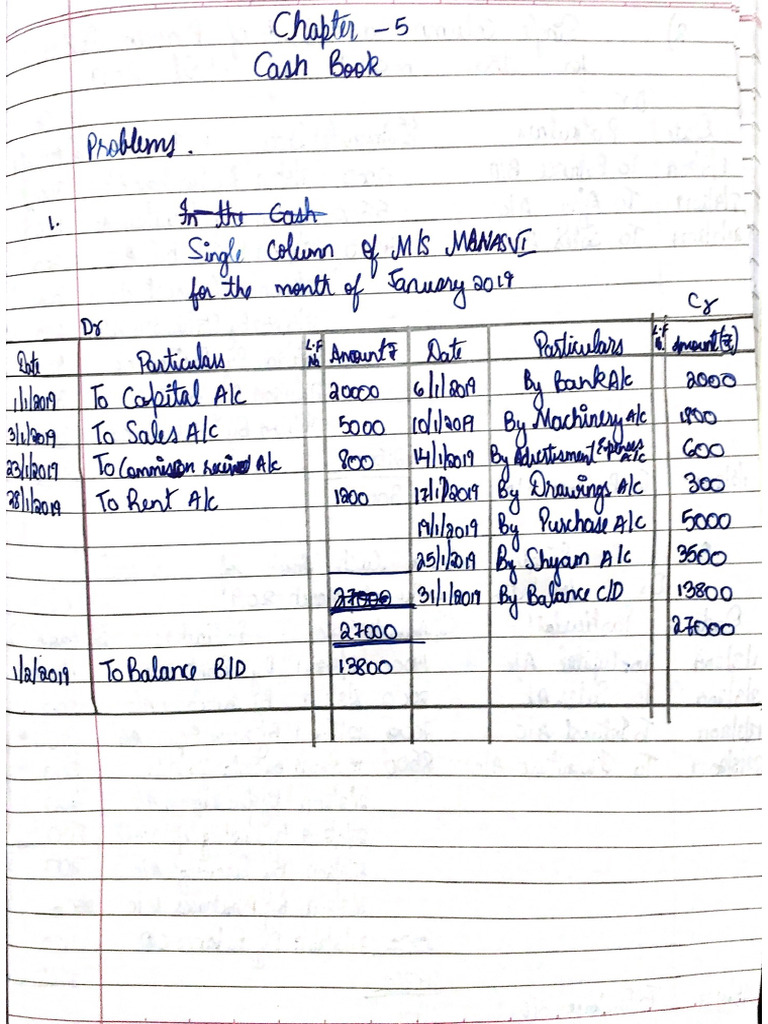 Chapter - 5
Cash Book
Problems.
1. In the Cash
Single Column of M/S MANASVI
for the month of January 2019
Dr Cr
Date Particulars L.F No Amount ₹ Date Particulars L.F N. Amount (₹)
1/1/2019 To Capital A/c 20000 6/1/2019 By Bank A/c 2000
3/1/2019 To Sales A/c 5000 10/1/2019 By Machinery A/c 1800
23/1/2019 To Commission received A/c 800 14/1/2019 By Advertisment Expenses A/c 600
28/1/2019 To Rent A/c 1200 17/1/2019 By Drawings A/c 300
19/1/2019 By Purchase A/c 5000
25/1/2019 By Shyam A/c 3500
27000 31/1/2019 By Balance C/D 13800
27000 27000
1/2/2019 To Balance B/D 13800